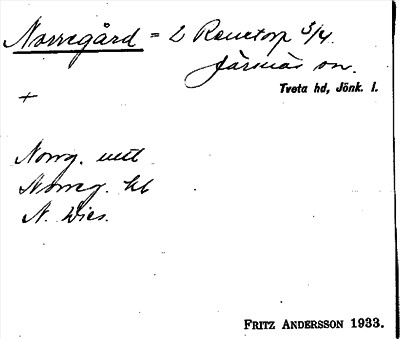 Norregård = 2 Ranetorp 3/4.
Järsnäs sn.
Tveta hd, Jönk. l.
+
Norrg. uttl
Norreg. kb
N. Wies.
FRITZ ANDERSSON 1933.